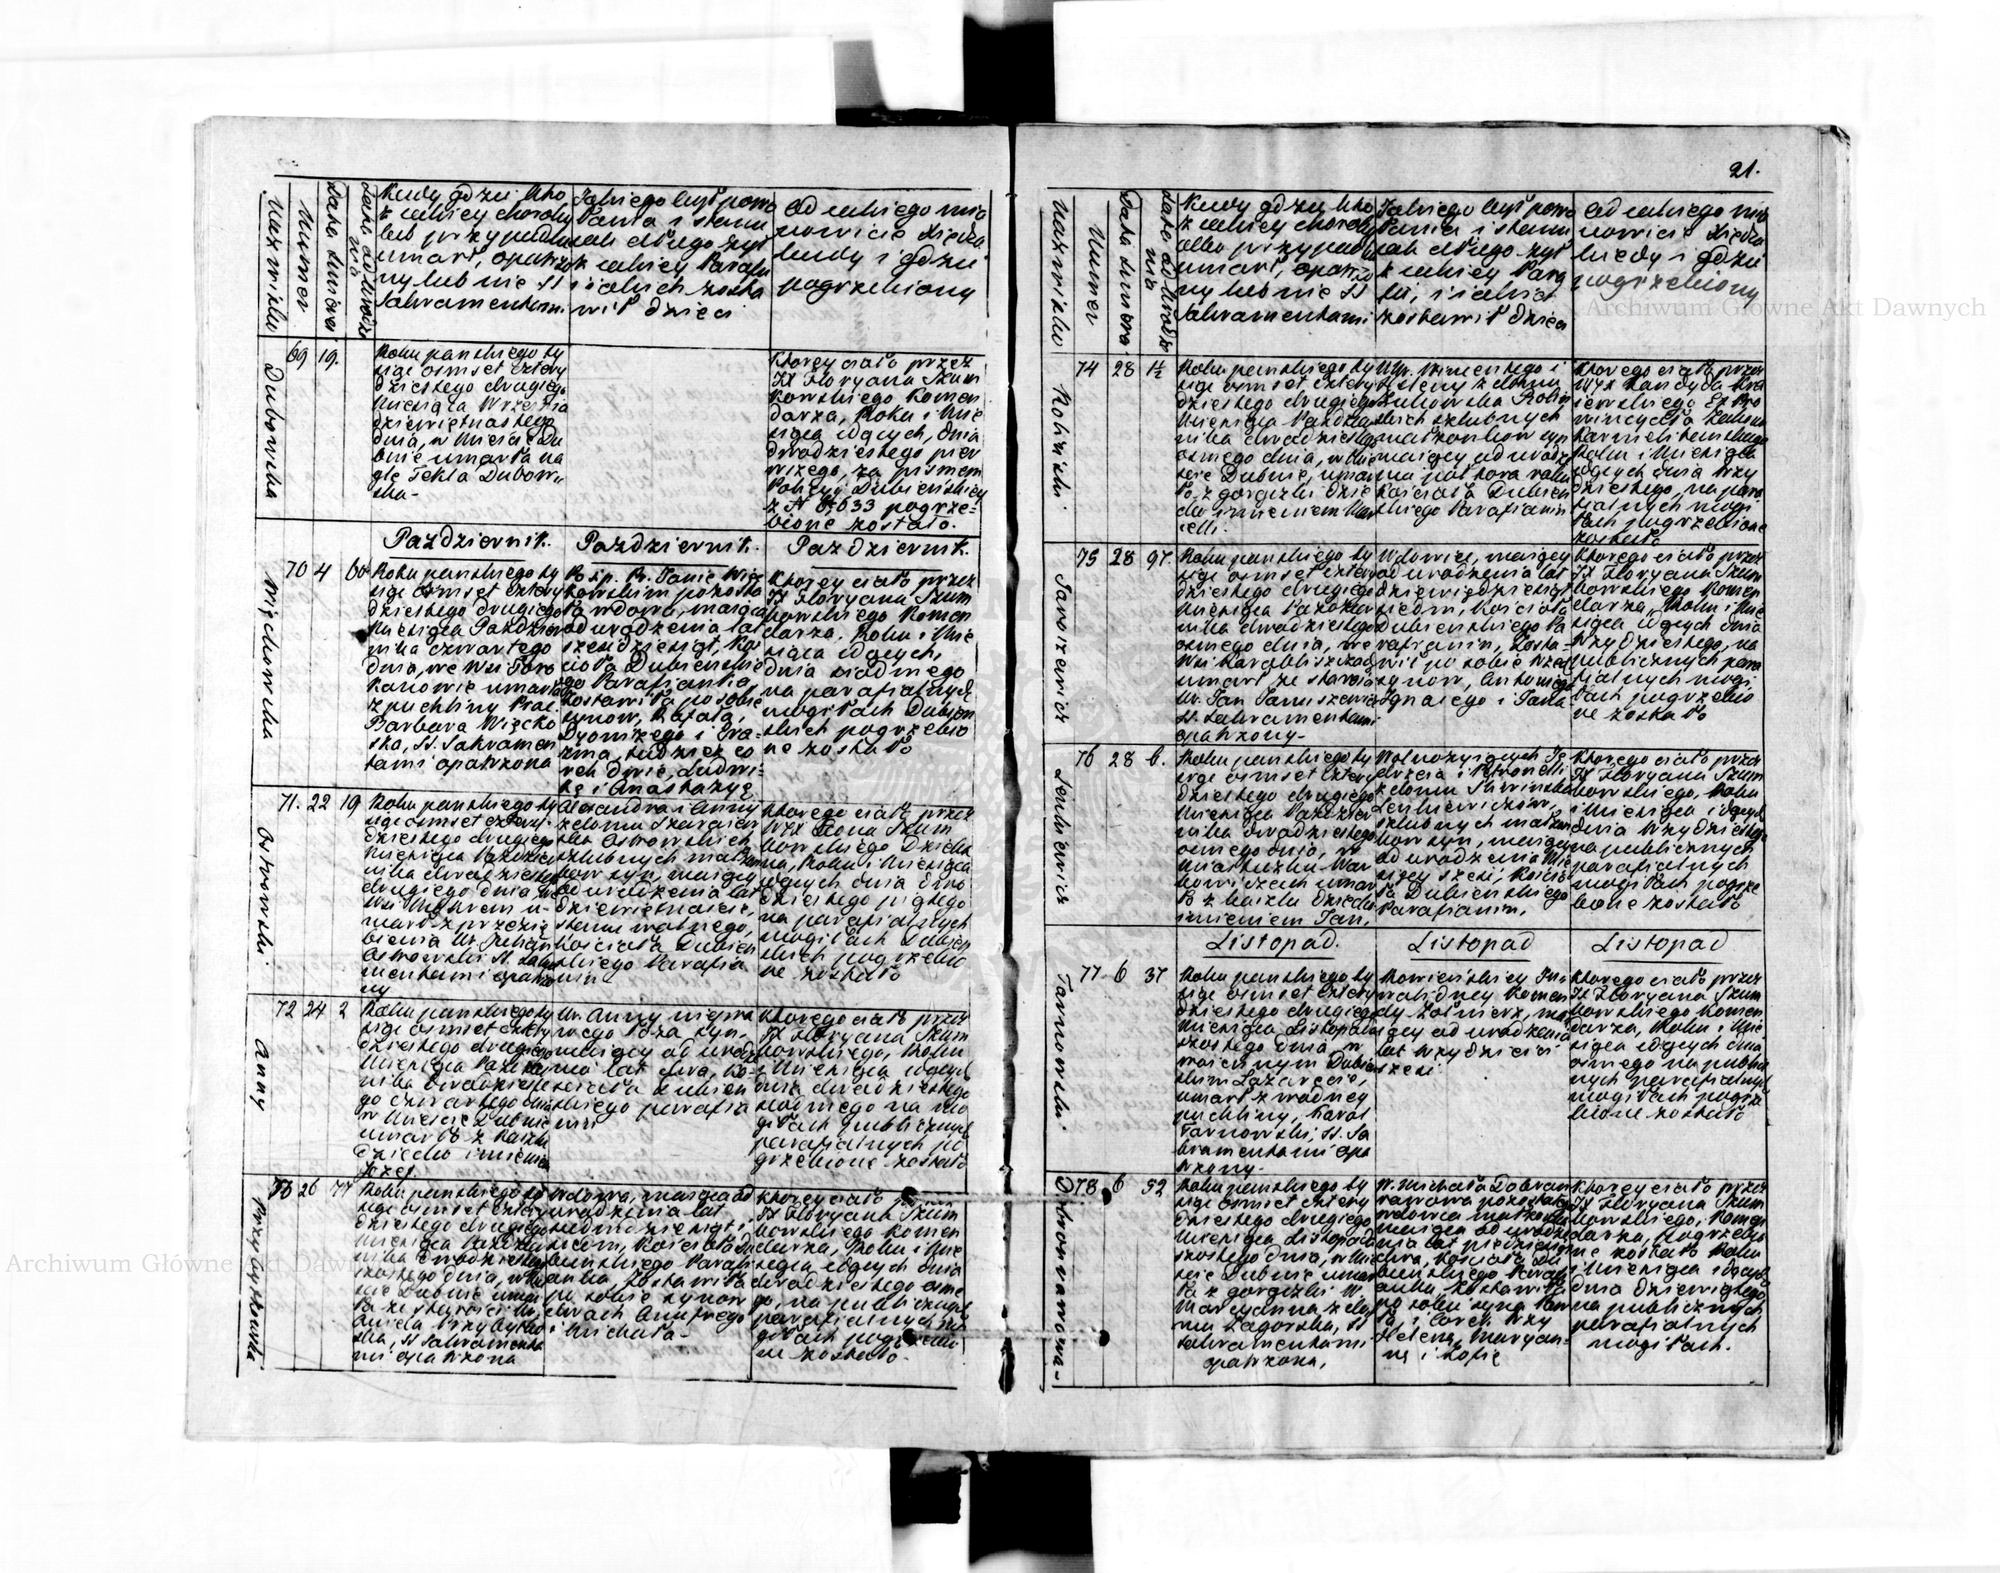 Nazwisko
Numer
Data Śmierci
Kiedy, gdzie, kto,
z jakiej choroby
lub przypadku
umarł, opatrzo
ny lub nie SS
Sakramentami
Jakiego był powo
łania i stanu
jak długo żył
z jakiej Parafii
i jakich zosta
wił dzieci
Od jakiego mia
nowicie Xiędza
kiedy i gdzie
pogrzebiony
Dubowska
69
19.
Roku panskiego ty
siąc osmset cztery
dziestego drugiego
Miesiąca Września
dziewietnastego
dnia, w Mieście Du
bnie umarła na
gle Tekla Dubow
ska-
Ktorey ciało przez
JX Floryana Szum
kowskiego Komen
darza, Roku i Mie
siąca idących, dnia
dwadziestego pier
wszego, za pismem
Policyi Dubieńskiey
z N 8633 pogrze=
bione zostało.
Pazdziernik.
Pazdziernik.
Pazdziernik.
Więckowska
70
4
60
Roku panskiego ty
siąc osmset cztery
dziestego drugiego
Miesiąca Pazdzier
nika czwartego
dnia, we Wsi Tara
kanowie umarła
z puchliny Prac.
Barbara Więcko
ska, SS. Sakramen
tami opatrzona
Po śp. Pr. Janie Wię
kowskim pozosta
ła wdowa, maiąca
od urodzenia lat
sześdziesiąt, Ko
ścioła Dubienskie
go Parafianka,
zostawiła po sobie
synow, Rafała,
Dyonizego i Gra=
zima, tudzież co
rek dwie, Ludwi=
kę i Anastazyę
Ktorey ciało przez
JX Floryana Szum
kowskiego Komen
darza, Roku i Mie
siąca idących,
dnia siodmego
na parafialnych
mogiłach Dubien
skich pogrzebio
ne zostało
Ostrowski
71.
22
19
Roku panskiego ty
siąc osmset cztery
dziestego drugiego
Miesiąca Pazdzier
nika dwadziestego
drugiego dnia we
Wsi
umarł z przezię
bienia Ur. Julian
Ostrowski SS. Sakra
mentami opatrzo
ny
Alexandra i Anny
z domu
Ostrowskich
szlubnych małżon
kow syn, maiący
od urodzenia lat
dziewietnascie,
stanu wolnego,
kościoła Dubien
skiego Parafia
nin-
Ktorego ciało przez
WJX Leona Szum
kowskiego Dzieka
na, Roku i Miesiąca
idących dnia dwa
dziestego piątego
na parafialnych
mogiłach Dubien
skich pogrzebio
ne zostało
Anny
72
24
2
Roku panskiego ty
siąc osmset cztery
dziestego drugiego
Miesiąca Pazdzier
nika dwadzieste
go czwartego dnia
w Mieście Dubnie
umarło z kaszlu
dziecko imieniem
Jozef
Ur. Anny niepra
wego łoża syn,
maiący od urodze
nia lat dwa, Ko
ścioła Dubien
skiego parafia
nin
Ktorego ciało przez
JX Floryana Szum
kowskiego, Roku
i Miesiąca idących
dnia dwadziestego
siodmego na mo
giłach publicznych
parafialnych po
grzebione zostało
Przybytkowska
73
26
77
Roku panskiego ty
siąc osmset cztery
dziestego drugiego
Miesiąca Pazdzier
nika dwadziestego
szostego dnia, w Mie
ście Dubnie umar
ła ze starości Ur.
Aniela Przybytko
ska, SS Sakramenta
mi opatrzona
Wdowa, maiąca od
urodzenia lat
siedmdziesiąt i
siedm, Kościoła Du
bieńskiego Parafi
anka, Zostawiła
po sobie synow
dwoch Onufrego
i Michała-
Ktorey ciało przez
JX Floryana Szum
kowskiego Komen
darza, Roku i Mie
siąca idących dnia
dwadziestego osme
go, na publicznych
parafialnych mo
giłach pogrzebio
ne zostało.
21.
Nazwisko
Numer
Data Śmierci
Kiedy gdzie kto
z jakiej choroby
albo przypadku
umarł, opatrzo
ny lub nie SS
Sakramentami
Jakiego był powo
łania i stanu
jak długo żył
z jakiej Para
fii, i jakich
zostawił dzieci
Od jakiego mia
nowicie Xiędza
kiedy i gdzie
pogrzebiony
Robiński.
74
28
1½
Roku panskiego ty
siąc osmset cztery
dziestego drugiego
Miesiąca Pazdzier
nika dwadziestego
osmego dnia, w Mie
ście Dubnie, umar
ło z gorączki dzie
cko imieniem Mar
celli.
Ur. Wincentego i
z domu
Robiń
skich szlubnych
małżonkow syn
maiący od urodze
nia poł tora roku
Kościoła Dubien
skiego Parafianin
Ktorego ciało przez
WJX Kandyda Kra
iewskiego Ex Pro
wincyała Zakonu
Karmelitanskiego
Roku i Miesiąca
idących dnia trzy
dziestego, na para
fialnych mogi
łach pogrzebione
zostało
Januszewicz
75
28
97.
Roku panskiego ty
siąc osmset cztery
dziestego drugiego
Miesiąca Pazdzier
nika dwadziestego
osmego dnia, we
Wsi
umarł ze starości
Ur. Jan Januszewicz
SS. Sakramentami
opatrzony-
Wdowiec, maiący
od urodzenia lat
dziewiędziesiąt
siedm, Kościoła
Dubienskiego Pa
rafianin, Zosta=
wił po sobie trzech
synow, Antoniego
Ignacego i Jana
Ktorego ciało przez
JX Floryana Szum
kowskiego Komen
darza, Roku i Mie
siąca idących dnia
trzydziestego, na
publicznych para
fialnych mogi
łach pogrzebio
ne zostało
Lenkiewicz
76
28
6.
Roku panskiego ty
siąc osmset cztery
dziestego drugiego
Miesiąca Pazdzier
nika dwadziestego
osmego dnia, w
Miasteczku War
kowiczach umar
ło z kaszlu dziecko
imieniem Jan,
Wolnożyiących Ję
drzeia i Petronelli
z domu
Lenkiewiczow,
szlubnych małżon
kow syn, maiący
od urodzenia mie
sięcy szesć, Kościo
ła Dubieńskiego
Parafianin,
Ktorego ciało przez
JX Floryana Szum
kowskiego, Roku
i Miesiąca idących
dnia trzydziestego
na publicznych
parafialnych
mogiłach pogrze
bione zostało
Listopad.
Listopad
Listopad
Tarnowski.
77
6
37
Roku panskiego ty
siąc osmset cztery
dziestego drugiego
Miesiąca Listopada
szostego dnia w
Dubien
skim Lazarecie,
umarł z wodney
puchliny, Karol
Tarnowski, SS. Sa
kramentami opa
trzony-
Kowieńskiey In=
walidney Komen
dy Żołnierz, ma
iący od urodzenia
lat trzydzieści
szesć
Ktorego ciało przez
JX Floryana Szum
kowskiego Komen
darza, Roku i Mie
siąca idących dnia
osmego na publicz
nych parafialnych
mogiłach pogrze
bione zostało
Dobrowarowa-
78
6
52
Roku panskiego ty
siąc osmset cztery
dziestego drugiego
Miesiąca Listopada
szostego dnia, w Mie
ście Dubnie umar
ła z gorączki W.
Maryanna z do
mu Zagorska, SS
Sakramentami
opatrzona,
W. Michała
pozostała
wdowa
maiąca od urodze
nia lat piędziesiąt
dwa, Kościoła Du
bieńskiego Parafi
anka, Zostawiła
po sobie syna
i corek trzy
Helenę, Maryan=
nę i Zofię
Ktorey ciało przez
JX Floryana Szum
kowskiego, Komen
darza, pogrzebio
ne zostało Roku
i Miesiąca idących
dnia dziewiątego
na publicznych
parafialnych
mogiłach.
Archiwum Główne Akt Dawnych
Archiwum Główne Akt Dawnych